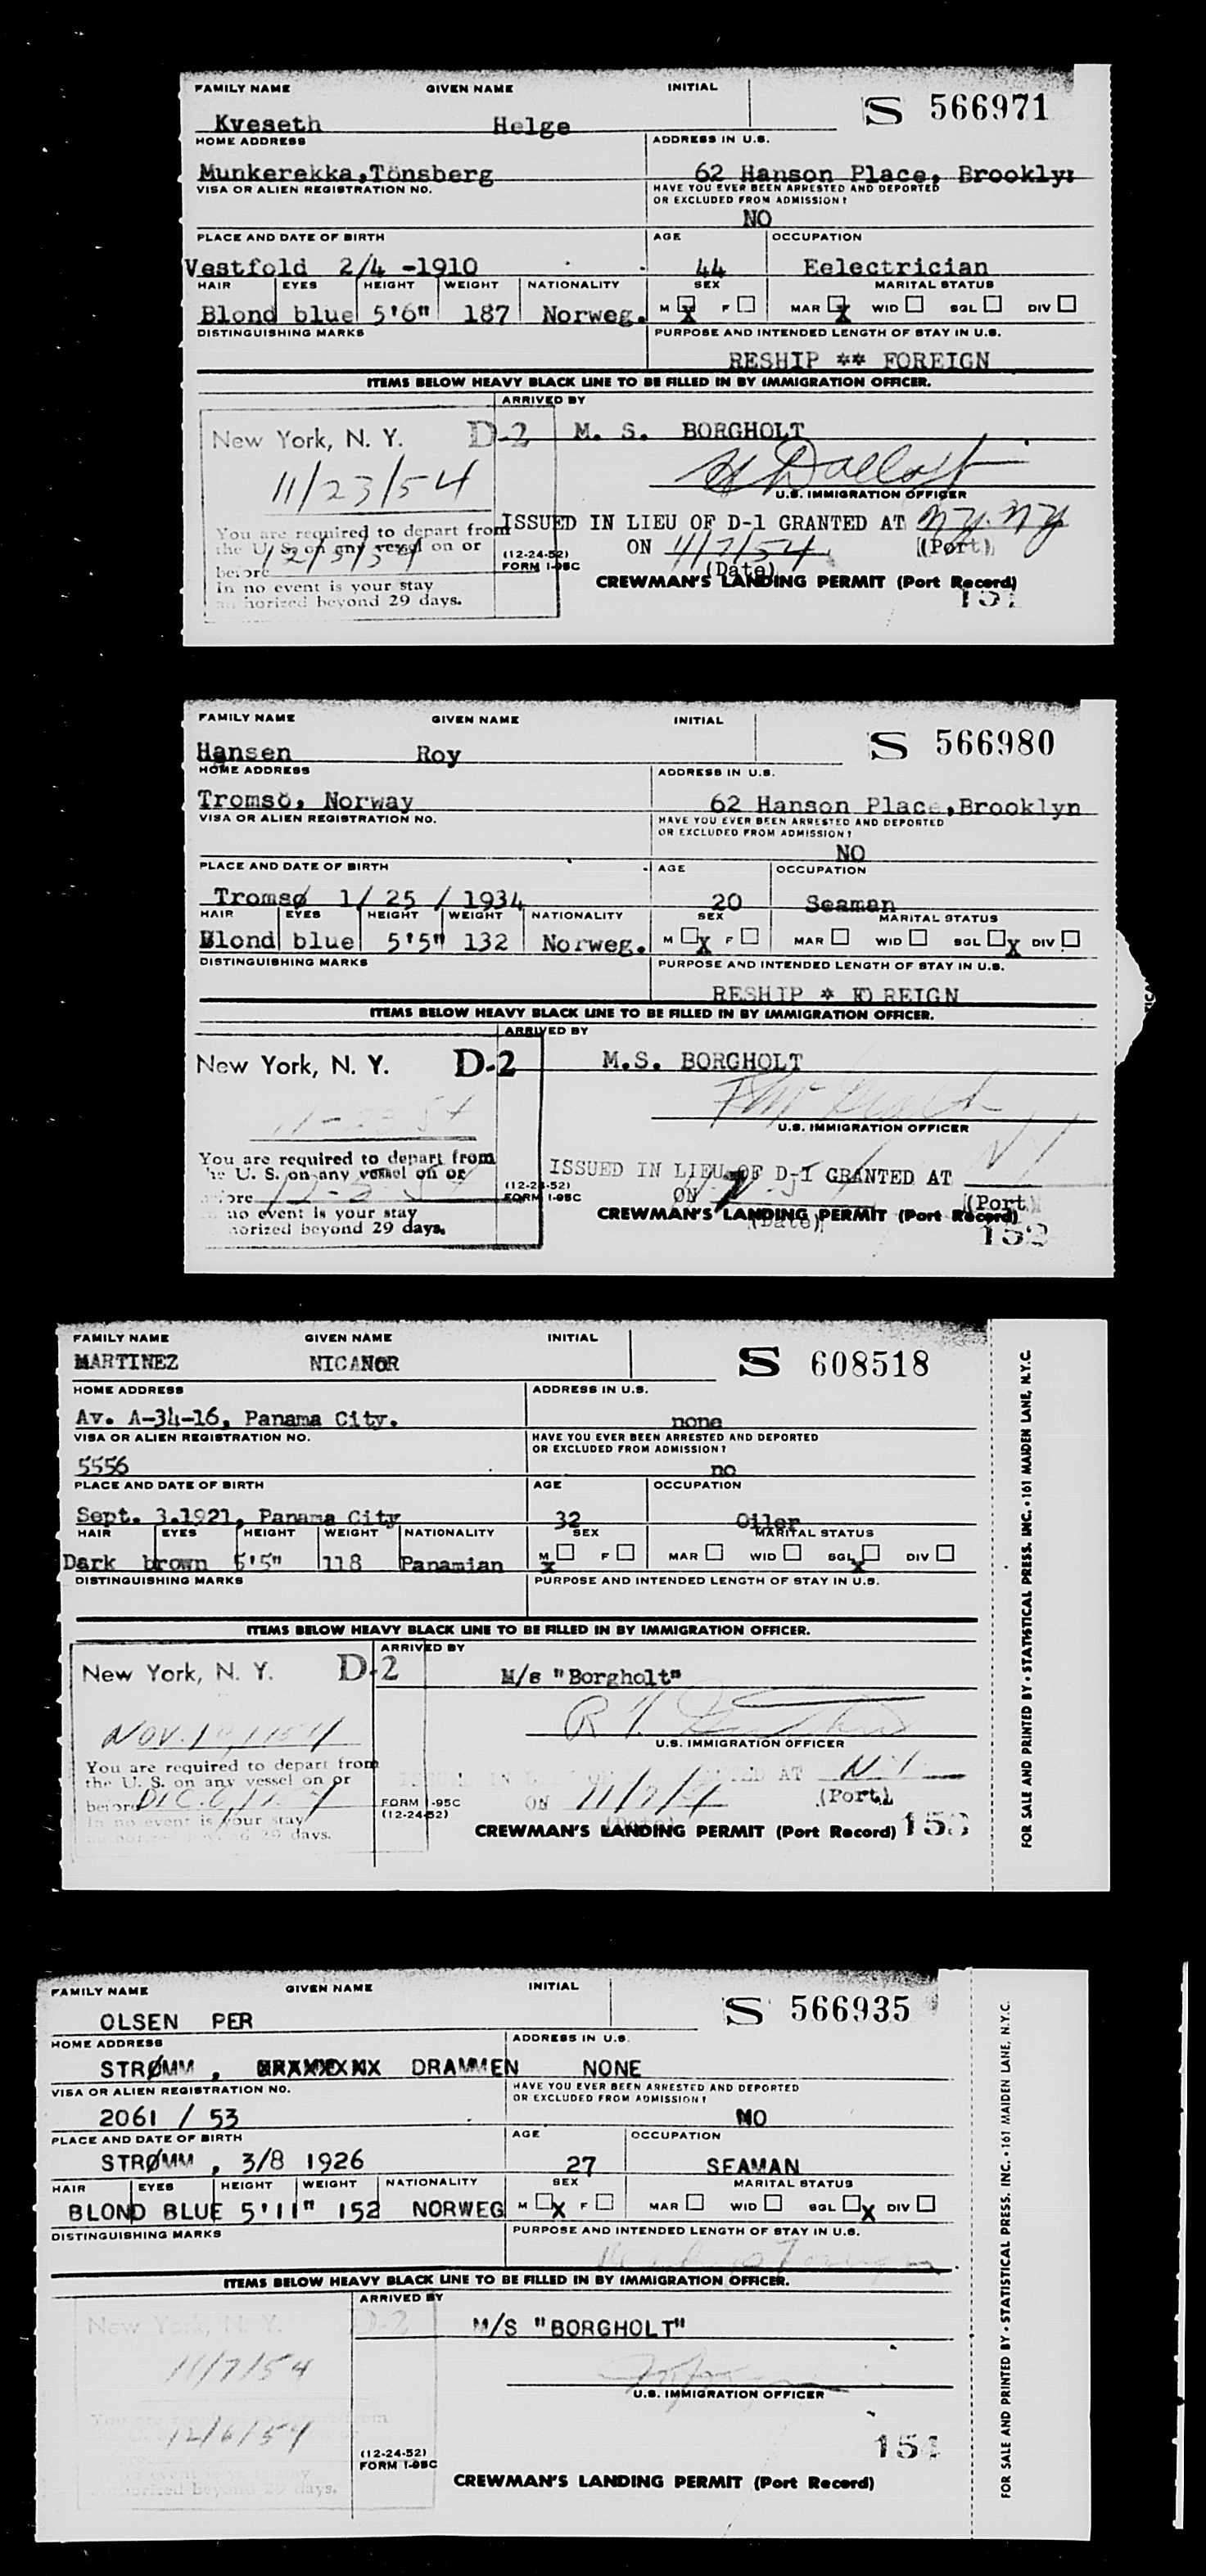 FAMILY NAME GIVEN NAME INITIAL
S 566971
Kveseth Helge
HOME ADDRESS ADDRESS IN U.S.
Munkerekka,Tönsberg 62 Hanson Place, Brooklyn
VISA OR ALIEN REGISTRATION NO. HAVE YOU EVER BEEN ARRESTED AND DEPORTED
OR EXCLUDED FROM ADMISSION?
NO
PLACE AND DATE OF BIRTH AGE OCCUPATION
Vestfold 2/4 -1910 44 Eelectrician
HAIR EYES HEIGHT WEIGHT NATIONALITY SEX MARITAL STATUS
Blond blue 5'6" 187 Norweg. M X F MAR X WID SGL DIV
DISTINGUISHING MARKS PURPOSE AND INTENDED LENGTH OF STAY IN U.S.
RESHIP ** FOREIGN
ITEMS BELOW HEAVY BLACK LINE TO BE FILLED IN BY IMMIGRATION OFFICER.
ARRIVED BY
New York, N. Y. D-2 M. S. BORGHOLT
11/23/54
U.S. IMMIGRATION OFFICER
You are required to depart from ISSUED IN LIEU OF D-1 GRANTED AT N.Y. N.Y
the U. S. on any vessel on or (12-24-52) ON 11/7/54 (Port)
before FORM I-95C (Date)
In no event is your stay CREWMAN'S LANDING PERMIT (Port Record)
horized beyond 29 days.
FAMILY NAME GIVEN NAME INITIAL
S 566980
Hansen Roy
HOME ADDRESS ADDRESS IN U.S.
Tromsö, Norway 62 Hanson Place,Brooklyn
VISA OR ALIEN REGISTRATION NO. HAVE YOU EVER BEEN ARRESTED AND DEPORTED
OR EXCLUDED FROM ADMISSION?
NO
PLACE AND DATE OF BIRTH AGE OCCUPATION
Tromsø 1/ 25 / 1934 20 Seaman
HAIR EYES HEIGHT WEIGHT NATIONALITY SEX MARITAL STATUS
Blond blue 5'5" 132 Norweg. M X F MAR WID SGL X DIV
DISTINGUISHING MARKS PURPOSE AND INTENDED LENGTH OF STAY IN U.S.
RESHIP * FOREIGN
ITEMS BELOW HEAVY BLACK LINE TO BE FILLED IN BY IMMIGRATION OFFICER.
ARRIVED BY
New York, N. Y. D-2 M.S. BORGHOLT
11-23 54
U.S. IMMIGRATION OFFICER
You are required to depart from ISSUED IN LIEU OF D-1 GRANTED AT N Y
he U. S. on any vessel on or (12-24-52) ON (Port)
fore FORM I-95C (Date)
no event is your stay CREWMAN'S LANDING PERMIT (Port Record)
horized beyond 29 days. 152
FAMILY NAME GIVEN NAME INITIAL
S 608518
MARTINEZ NICANOR
HOME ADDRESS ADDRESS IN U.S.
Av. A-34-16, Panama City. none
VISA OR ALIEN REGISTRATION NO. HAVE YOU EVER BEEN ARRESTED AND DEPORTED
OR EXCLUDED FROM ADMISSION?
5556 no
PLACE AND DATE OF BIRTH AGE OCCUPATION
Sept. 3.1921, Panama City 32 Oiler
HAIR EYES HEIGHT WEIGHT NATIONALITY SEX MARITAL STATUS
Dark brown 5'5" 118 Panamian M X F MAR WID SGL X DIV
DISTINGUISHING MARKS PURPOSE AND INTENDED LENGTH OF STAY IN U.S.
ITEMS BELOW HEAVY BLACK LINE TO BE FILLED IN BY IMMIGRATION OFFICER.
ARRIVED BY
New York, N. Y. D-2 M/s "Borgholt"
U.S. IMMIGRATION OFFICER
You are required to depart from AT N Y
the U. S. on any vessel on or ON 11/7/54 (Port)
before FORM I-95C
In no event is your stay (12-24-52)
29 days. CREWMAN'S LANDING PERMIT (Port Record) 153
FOR SALE AND PRINTED BY • STATISTICAL PRESS, INC. • 161 MAIDEN LANE, N.Y.C.
FAMILY NAME GIVEN NAME INITIAL
S 566935
OLSEN PER
HOME ADDRESS ADDRESS IN U.S.
STRØMM , DRAMMEN NONE
VISA OR ALIEN REGISTRATION NO. HAVE YOU EVER BEEN ARRESTED AND DEPORTED
OR EXCLUDED FROM ADMISSION?
2061 / 53 NO
PLACE AND DATE OF BIRTH AGE OCCUPATION
STRØMM , 3/8 1926 27 SEAMAN
HAIR EYES HEIGHT WEIGHT NATIONALITY SEX MARITAL STATUS
BLOND BLUE 5'11" 152 NORWEG M X F MAR WID SGL X DIV
DISTINGUISHING MARKS PURPOSE AND INTENDED LENGTH OF STAY IN U.S.
ITEMS BELOW HEAVY BLACK LINE TO BE FILLED IN BY IMMIGRATION OFFICER.
ARRIVED BY
New York, N. Y. D-2 M/S "BORGHOLT"
11/7/54
U.S. IMMIGRATION OFFICER
12/6/54
(12-24-52)
FORM I-95C
beyond 29 days. CREWMAN'S LANDING PERMIT (Port Record)
FOR SALE AND PRINTED BY • STATISTICAL PRESS, INC. • 161 MAIDEN LANE, N.Y.C.